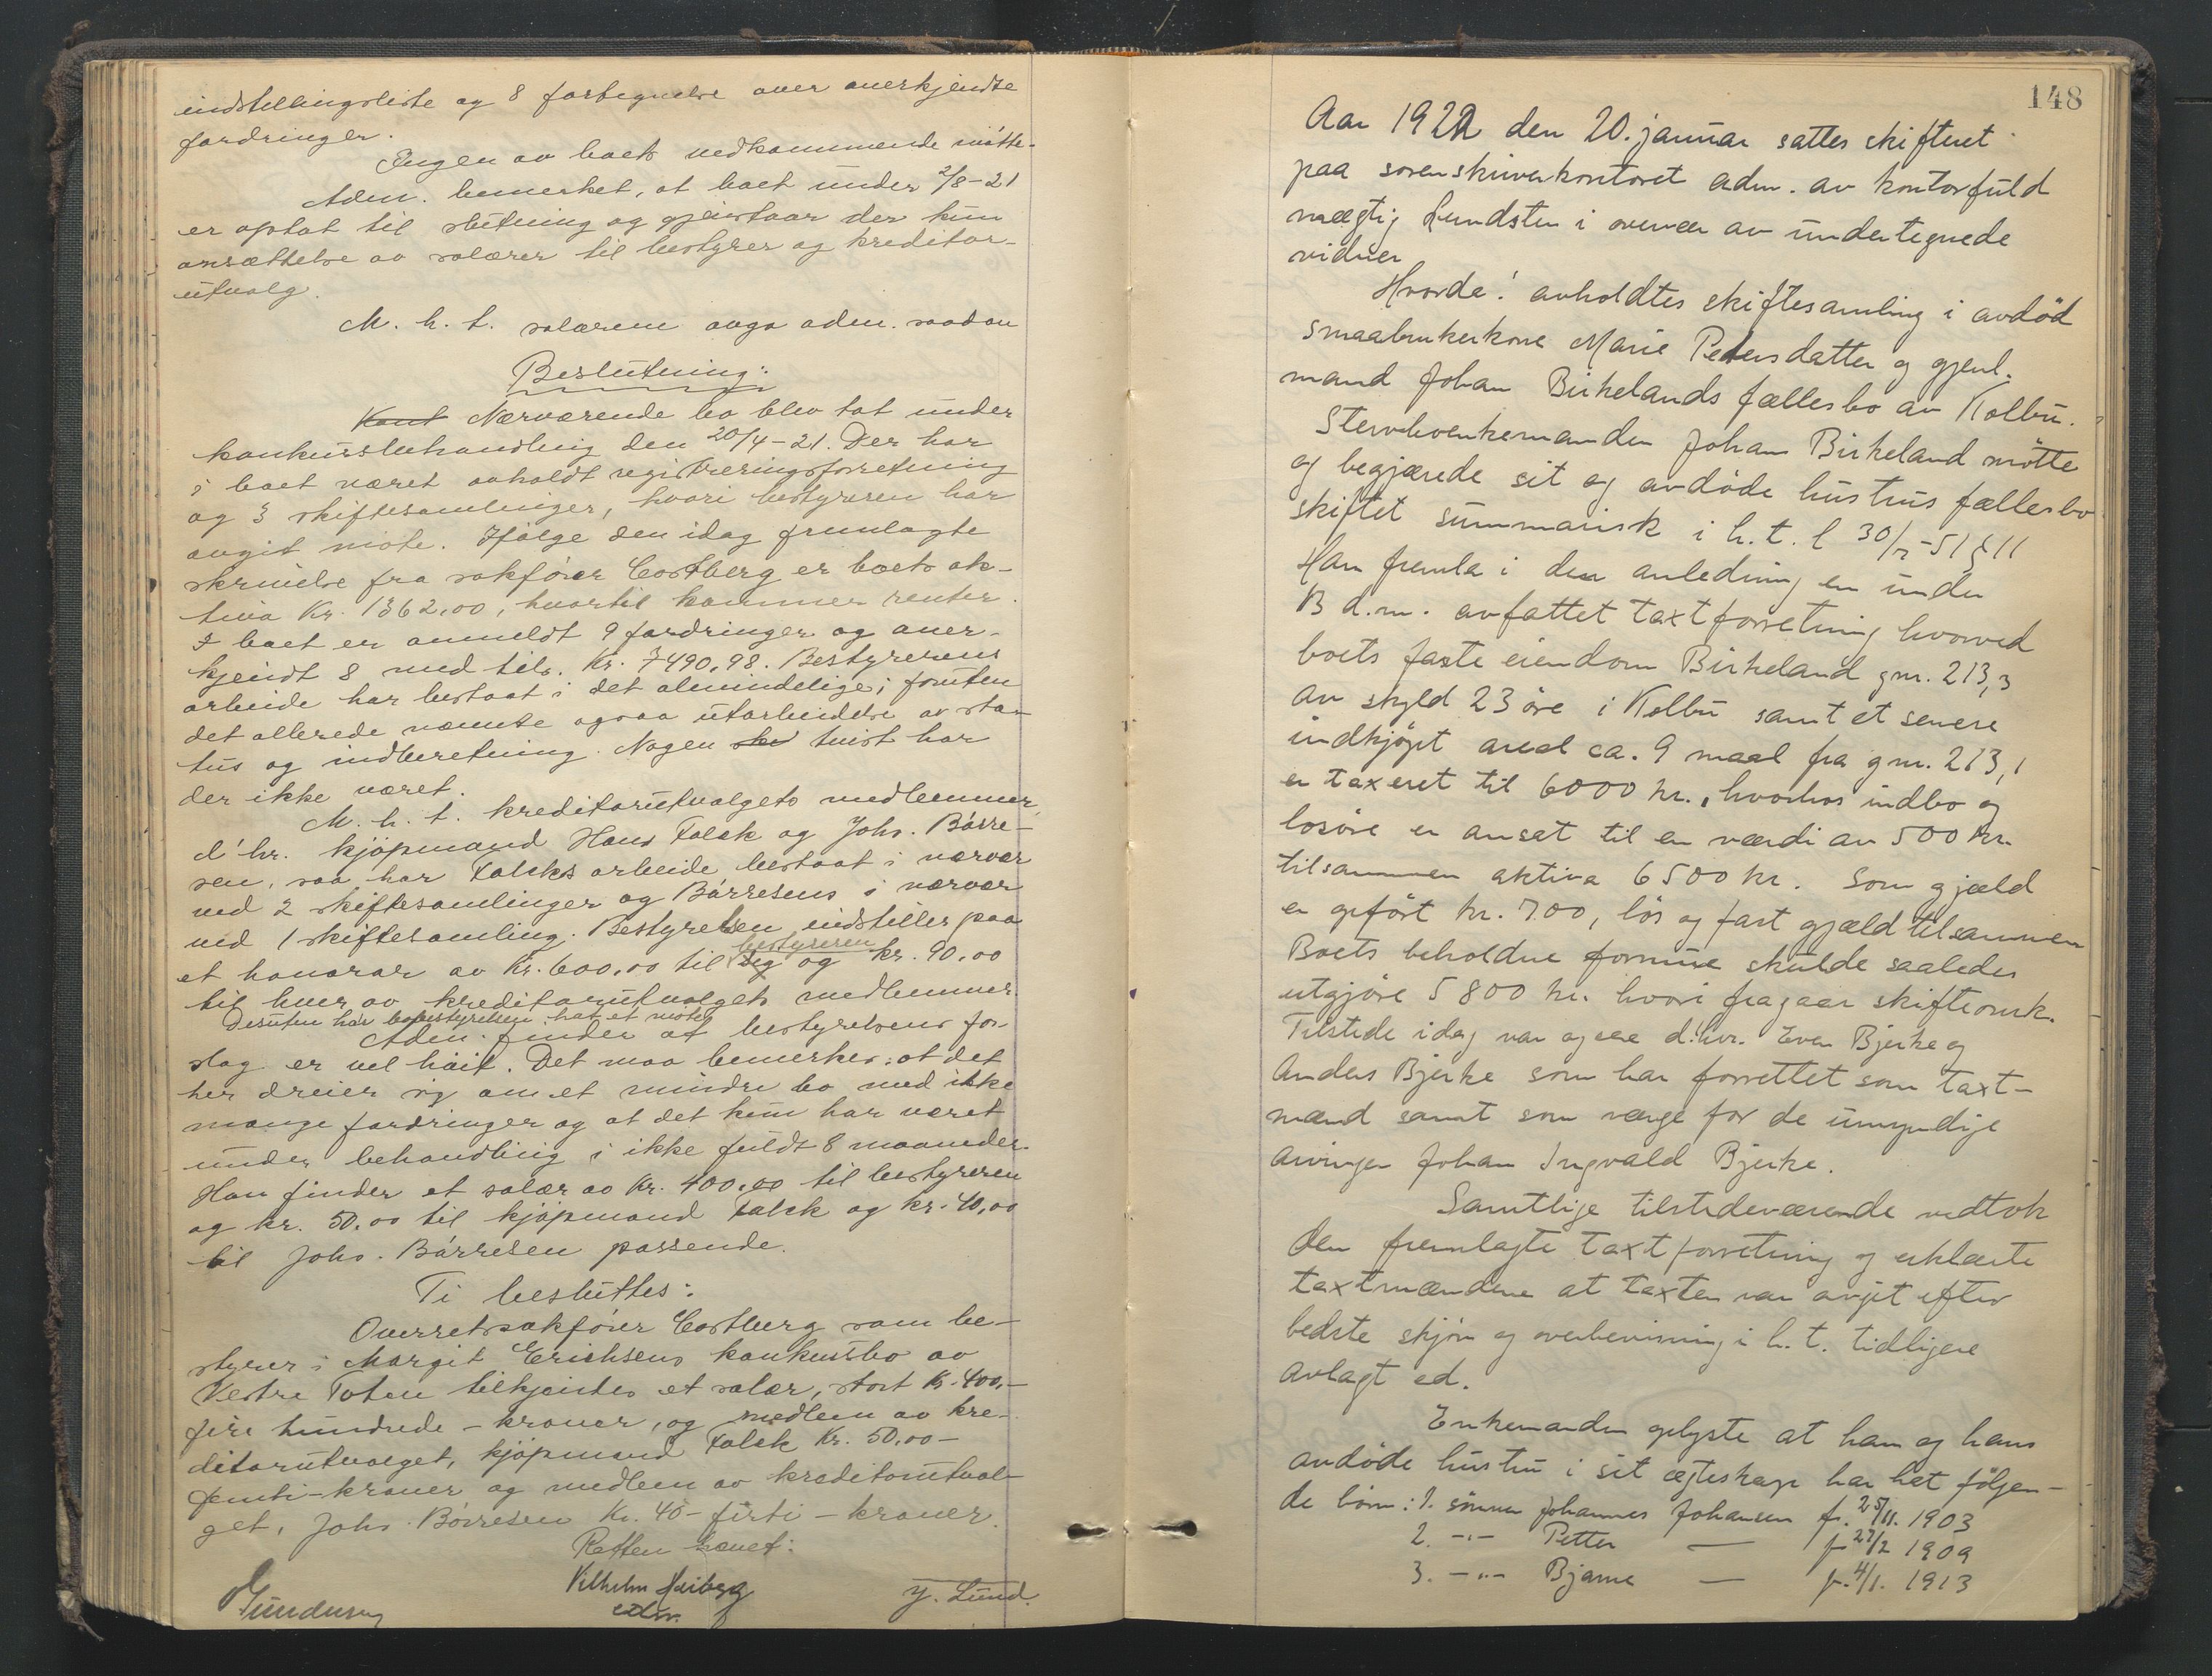 indstillingsliste og 8 fortegnelse over anerkjendte
fordringer.
Ingen av boets vedkommende mötte.
Adm. bemerket, at boet under 2/8-21
er optat til slutning og gjenstaar der kun
ansættelse av salærer til bestyrer og kreditor-
utvalg.
M. h. t. salærene avga adm. saadan
Beslutning:
Kont Nærværende bo blev tat under
konkursbehandling den 20/4-21. Der har
i boet været avholdt registreringsforretning
og 3 skiftesamlinger, hvori bestyreren har
avgit möte. Ifölge den idag fremlagte
skrivelse fra sakförer Costberg er boets ak-
tiva Kr. 1362,00, hvortil kommer renter.
I boet er anmeldt 9 fordringer og aner-
kjendt 8 med tils. Kr. 7490,98. Bestyrerens
arbeide har bestaat i det almindelige; foruten
det allerede nævnte ogsaa utarbeidelse av sta-
tus og indberetning. Nogen tvist har
der ikke været.
M. h. t. kreditorutvalgets medlemmer,
d'hr. kjöpmand Hans Falck og Johs. Börre-
sen, saa har Falcks arbeide bestaat i nærvær
ved 2 skiftesamlinger og Börresens i nærvær
ved 1 skiftesamling. Bestyrelsen indstiller paa
bestyreren
et honorar av Kr. 600,00 til seg og kr. 90,00
til hver av kreditorutvalgets medlemmer.
Desuten har bobestyrelsen hat et möte
Adm. finder at bestyrelsens for-
slag er vel höit. Det maa bemerkes: at det
her dreier sig om et mindre bo med ikke
mange fordringer og at det kun har været
under behandling i ikke fuldt 8 maaneder.
Han finder et salær av Kr. 400,00 til bestyreren
og kr. 50,00 til kjöpmand Falck og kr. 40,00
til Johs. Börresen passende.
Ti besluttes:
Overretssakförer Costberg som be-
styrer i Margit Erichsens konkursbo av
Vestre Toten tilkjendes et salær, stort Kr. 400,-
fire hundrede - kroner, og medlem av kre-
ditorutvalget, kjöpmand Falck Kr. 50,00-
femti-kroner og medlem av kreditorutval-
get, Johs. Börresen Kr. 40- firti - kroner.
Retten hævet:
Vilhelm Heiberg
Gundersen
edsv.
J. Lund.
148
Aar 1922 den 20. januar sattes skifteret
paa sorenskriverkontoret adm. av kontorfuld
mægtig Lundsten i overvær av undertegnede
vidner
Hvorda: avholdtes skiftesamling i avdöd
smaabrukerkone Marie Pedersdatter og gjenl.
mand Johan Birkelands fællesbo av Kolbu.
Stervboenkemanden Johan Birkeland mötte
og begjærede sit og avdöde hustrus fællesbo
skiftet summarisk i h. t. l 30/7-51 § 11
Han fremla i den anledning en under
13 d.m. avfattet taxtforretning hvorved
boets faste eiendom Birkeland gnr. 213,3
av skyld 23 öre i Kolbu samt et senere
indkjöpt areal ca. 9 maal fra gnr. 213,1
er taxeret til 6000 kr., hvorhos indbo og
lösöre er ansat til en værdi av 500 kr.
tilsammen aktiva 6500 kr. Som gjæld
er opfört kr. 700, lös og fast gjæld tilsammen
Boets beholdne formue skulde saaledes
utgjöre 5800 kr. hvori fragaar skifteomk.
Tilstede idag var ogsaa d'hr. Even Bjerke og
Anders Bjerke som har forrettet som taxt-
mænd samt som værge for de umyndige
arvinger Johan Ingvald Bjerke.
Samtlige tilstedeværende vedtok
den fremlagte taxtforretning og erklærte
taxtmændene at taxten var avgit efter
bedste skjön og overbevisning i h. t. tidligere
avlagt ed.
Enkemanden oplyste at han og hans
avdöde hustru i sit egteskap har hat fölgen-
de börn: 1. sönnen Johannes Johansen f. 25/11. 1903
2. -"- Petter — f 27/2 1909
3. -"- Bjarne — f. 4/1. 1913